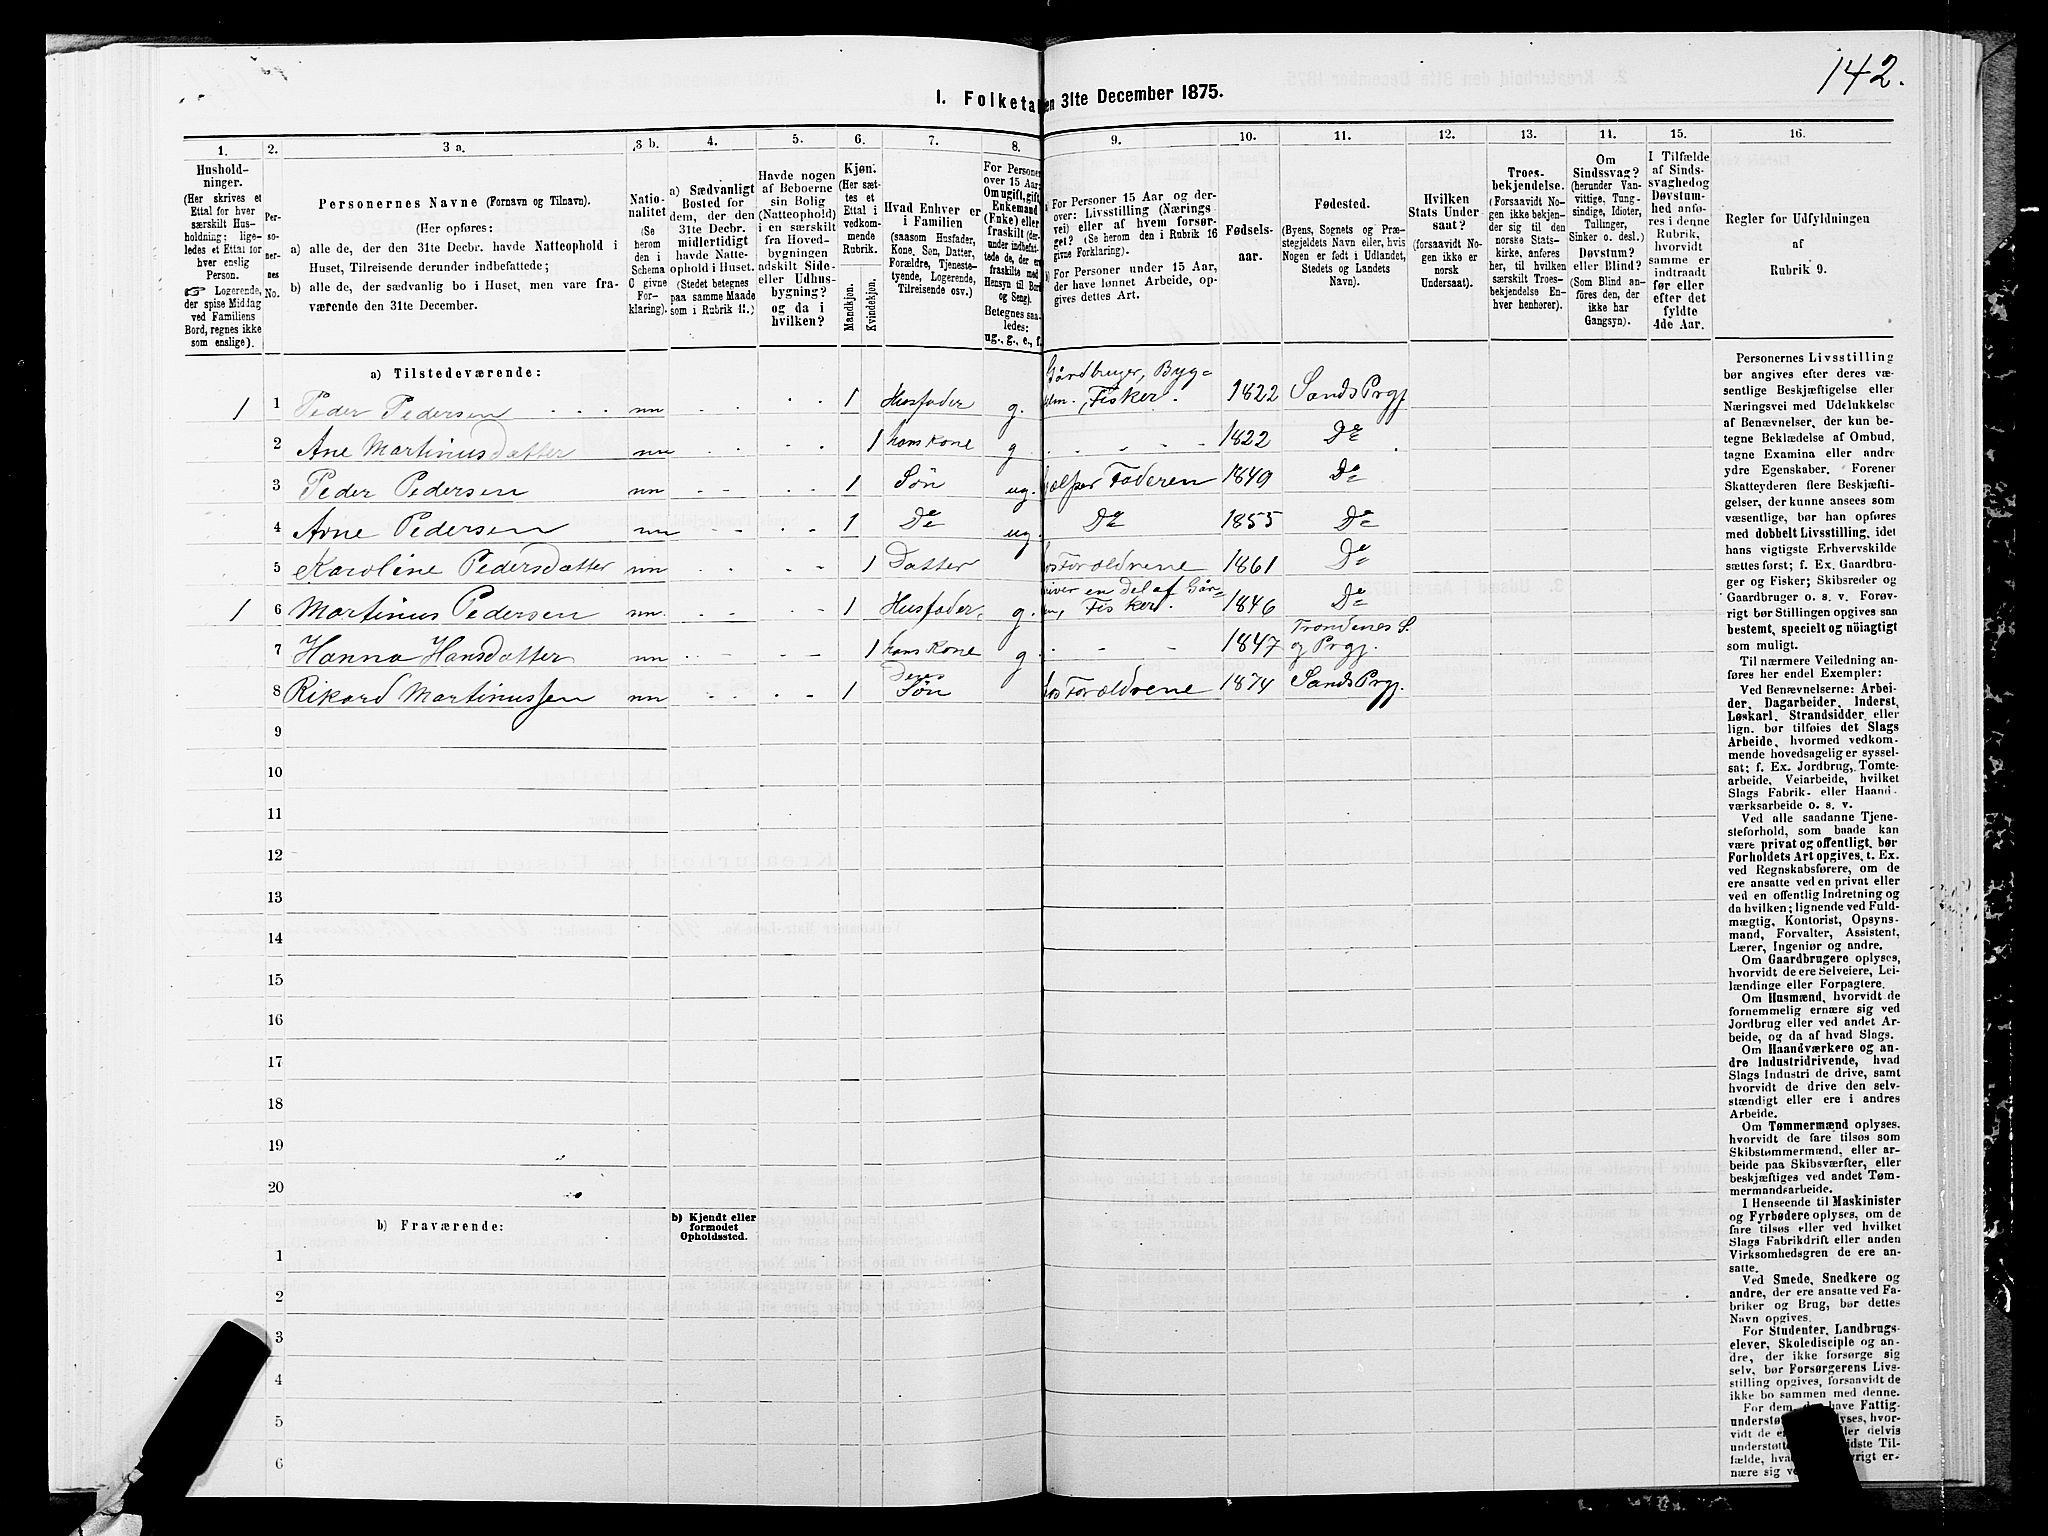 142.
I. Folketa en 31te December 1875.
1. 2. 3 a. 3 b. 4. 5. 6. 7. 8. 9. 10. 11. 12. 13. 14. 15. 16.
Hushold-
ninger.
(Her skrives et
Ettal for hver
særskilt Hus-
holdning; lige-
ledes et Ettal for
hver enslig
Person.
☞ Logerende,
der spise Middag
ved Familiens
Bord, regnes ikke
som enslige).
Per-
so-
ner-
nes
No.
Personernes Navne (Fornavn og Tilnavn).
(Her opføres:
a) alle de, der den 31te Decbr. havde Natteophold i
Huset, Tilreisende derunder indbefattede;
b) alle de, der sædvanlig bo i Huset, men vare fra-
værende den 31te December.
Natio-
nalitet
(Se
herom
den i
Schema
C givne
For-
klaring).
a) Sædvanligt
Bosted for
dem, der den
31te Decbr.
midlertidigt
havde Natte-
ophold i Huset.
(Stedet betegnes
paa samme Maade
som i Rubrik 11.)
Havde nogen
af Beboerne
sin Bolig
(Natteophold)
i en særskilt
fra Hoved-
bygningen
adskilt Side-
eller Udhus-
bygning?
og da i
hvilken?
Kjøn.
(Her sæt-
tes et
Ettal i
vedkom-
mende
Rubrik.
Mandkjøn.
Kvindekjøn.
Hvad Enhver er
i Familien
(saasom Husfader,
Kone, Søn, Datter,
Forældre, Tjeneste-
tyende, Logerende,
Tilreisende osv.)
For Personer
over 15 Aar:
Om ugift, gift,
Enkemand
(Enke) eller
fraskilt (der-
under indbefat-
tede de, der ere
fraskilte med
Hensyn til Bord
og Seng).
Betegnes saa-
ledes:
ug., g., e., f.
For Personer 15 Aar og der-
over: Livsstilling (Nærings-
vei) eller af hvem forsør-
get? (Se herom den i Rubrik 16
givne Forklaring.)
For Personer under 15 Aar,
der have lønnet Arbeide, op-
gives dettes Art.
Fødsels-
aar.
Fødested.
(Byens, Sognets og Præ-
stegjeldets Navn eller, hvis
Nogen er født i Udlandet,
Stedets og Landets
Navn).
Hvilken
Stats Under-
saat?
(forsaavidt No-
gen ikke er
norsk
Undersaat).
Troes-
bekjendelse.
(Forsaavidt No-
gen ikke bekjen-
der sig til den
norske Stats-
kirke, anføres
her, til hvilken
særskilt Troes-
bekjendelse En-
hver henhører).
Om
Sindssvag?
(herunder Van-
vittige, Tung-
sindige, Idioter,
Tullinger,
Sinker o. desl.)
Døvstum?
eller Blind?
(Som Blind an-
føres den, der
ikke har
Gangsyn).
I Tilfælde
af Sinds-
svaghed og
Døvstum-
hed anfø-
res i denne
Rubrik,
hvorvidt
samme er
indtraadt
før eller
efter det
fyldte
4de Aar.
Regler for Udfyldningen
af
Rubrik 9.
a) Tilstedeværende:
1 1 Peder Pedersen nn 1 Husfader g. Gårdbruger, Byg- , Fisker. 1822 Sands Prgj
2 Ane Martinusdatter nn 1 hans Kone g 1822 De
3 Peder Pedersen nn 1 Søn ug. Hjælper Faderen 1849 De
4 Arne Pedersen nn 1 De ug. De 1855 De
5 Karoline Pedersdatter nn 1 Datter Forældrene 1861 De
1 6 Martinus Pedersen nn. 1 Husfader g. en Del af Går- Fisker. 1846 De
7 Hanna Hansdatter nn 1 hans Kone g 1847 Trondenes S. og Prgj.
8 Rikard Martinussen nn 1 Deres Søn Forældrene 1874 Sands Prgj.
9
10
11
12
13
14
15
16
17
18
19
20
b) Fraværende:
b) Kjendt eller
formodet
Opholdssted.
1
2
3
4
5
6
Personernes Livsstilling
bør angives efter deres væ-
sentlige Beskjæftigelse eller
Næringsvei med Udelukkelse
af Benævnelser, der kun be-
tegne Beklædelse af Ombud,
tagne Examina eller andre
ydre Egenskaber. Forener
Skatteyderen flere Beskjæfti-
gelser, der kunne ansees som
væsentlige, bør han opføres
med dobbelt Livsstilling, idet
hans vigtigste Erhvervskilde
sættes først; f. Ex. Gaardbru-
ger og Fisker; Skibsreder og
Gaardbruger o. s. v. Forøv-
rigt bør Stillingen opgives saa
bestemt, specielt og nöiagtigt
som muligt.
Til nærmere Veiledning an-
føres her endel Exempler:
Ved Benævnelserne: Arbei-
der, Dagarbeider, Inderst,
Løskarl, Strandsidder eller
lign. bør tilføies det Slags
Arbeide, hvormed vedkom-
mende hovedsagelig er syssel-
sat; f. Ex. Jordbrug, Tomte-
arbeide, Veiarbeide, hvilket
Slags Fabrik- eller Haand-
værksarbeide o. s. v.
Ved alle saadanne Tjene-
steforhold, som baade kan
være privat og offentligt, bør
Forholdets Art opgives, t. Ex.
ved Regnskabsførere, om de
ere ansatte ved en privat eller
ved en offentlig Indretning og
da hvilken; lignende ved Fuld-
mægtig, Kontorist, Opsyns-
mand, Forvalter, Assistent,
Lærer, Ingeniør og andre.
Om Gaardbrugere oplyses,
hvorvidt de ere Selveiere, Lei-
lændinge eller Forpagtere.
Om Husmænd, hvorvidt de
fornemmelig ernære sig ved
Jordbrug eller ved andet Ar-
beide, og da af hvad Slags.
Om Haandværkere og an-
dre Industridrivende, hvad
Slags Industri de drive, samt
hvorvidt de drive den selv-
stændigt eller ere i andres
Arbeide.
Om Tømmermænd oplyses,
hvorvidt de fare tilsøs som
Skibstømmermænd, eller ar-
beide paa Skibsværfter, eller
beskjæftiges ved andet Tøm-
mermandsarbeide.
I Henseende til Maskinister
og Fyrbødere oplyses, om de
fare tilsøs eller ved hvilket
Slags Fabrikdrift eller anden
Virksomhedsgren de ere an-
satte.
Ved Smede, Snedkere og
andre, der ere ansatte ved Fa-
briker og Brug, bør dettes
Navn opgives.
For Studenter, Landbrugs-
elever, Skoledisciple og an-
dre, der ikke forsørge sig
selv, bør Forsørgerens Livs-
stilling opgives, forsaavidt de
ikke bo sammen med denne.
For dem, have Fattig-
understø lyses, hvor-
vidt de eller delvis
understøtte idste Til-
fælde, hva vrigt er-
nære sig